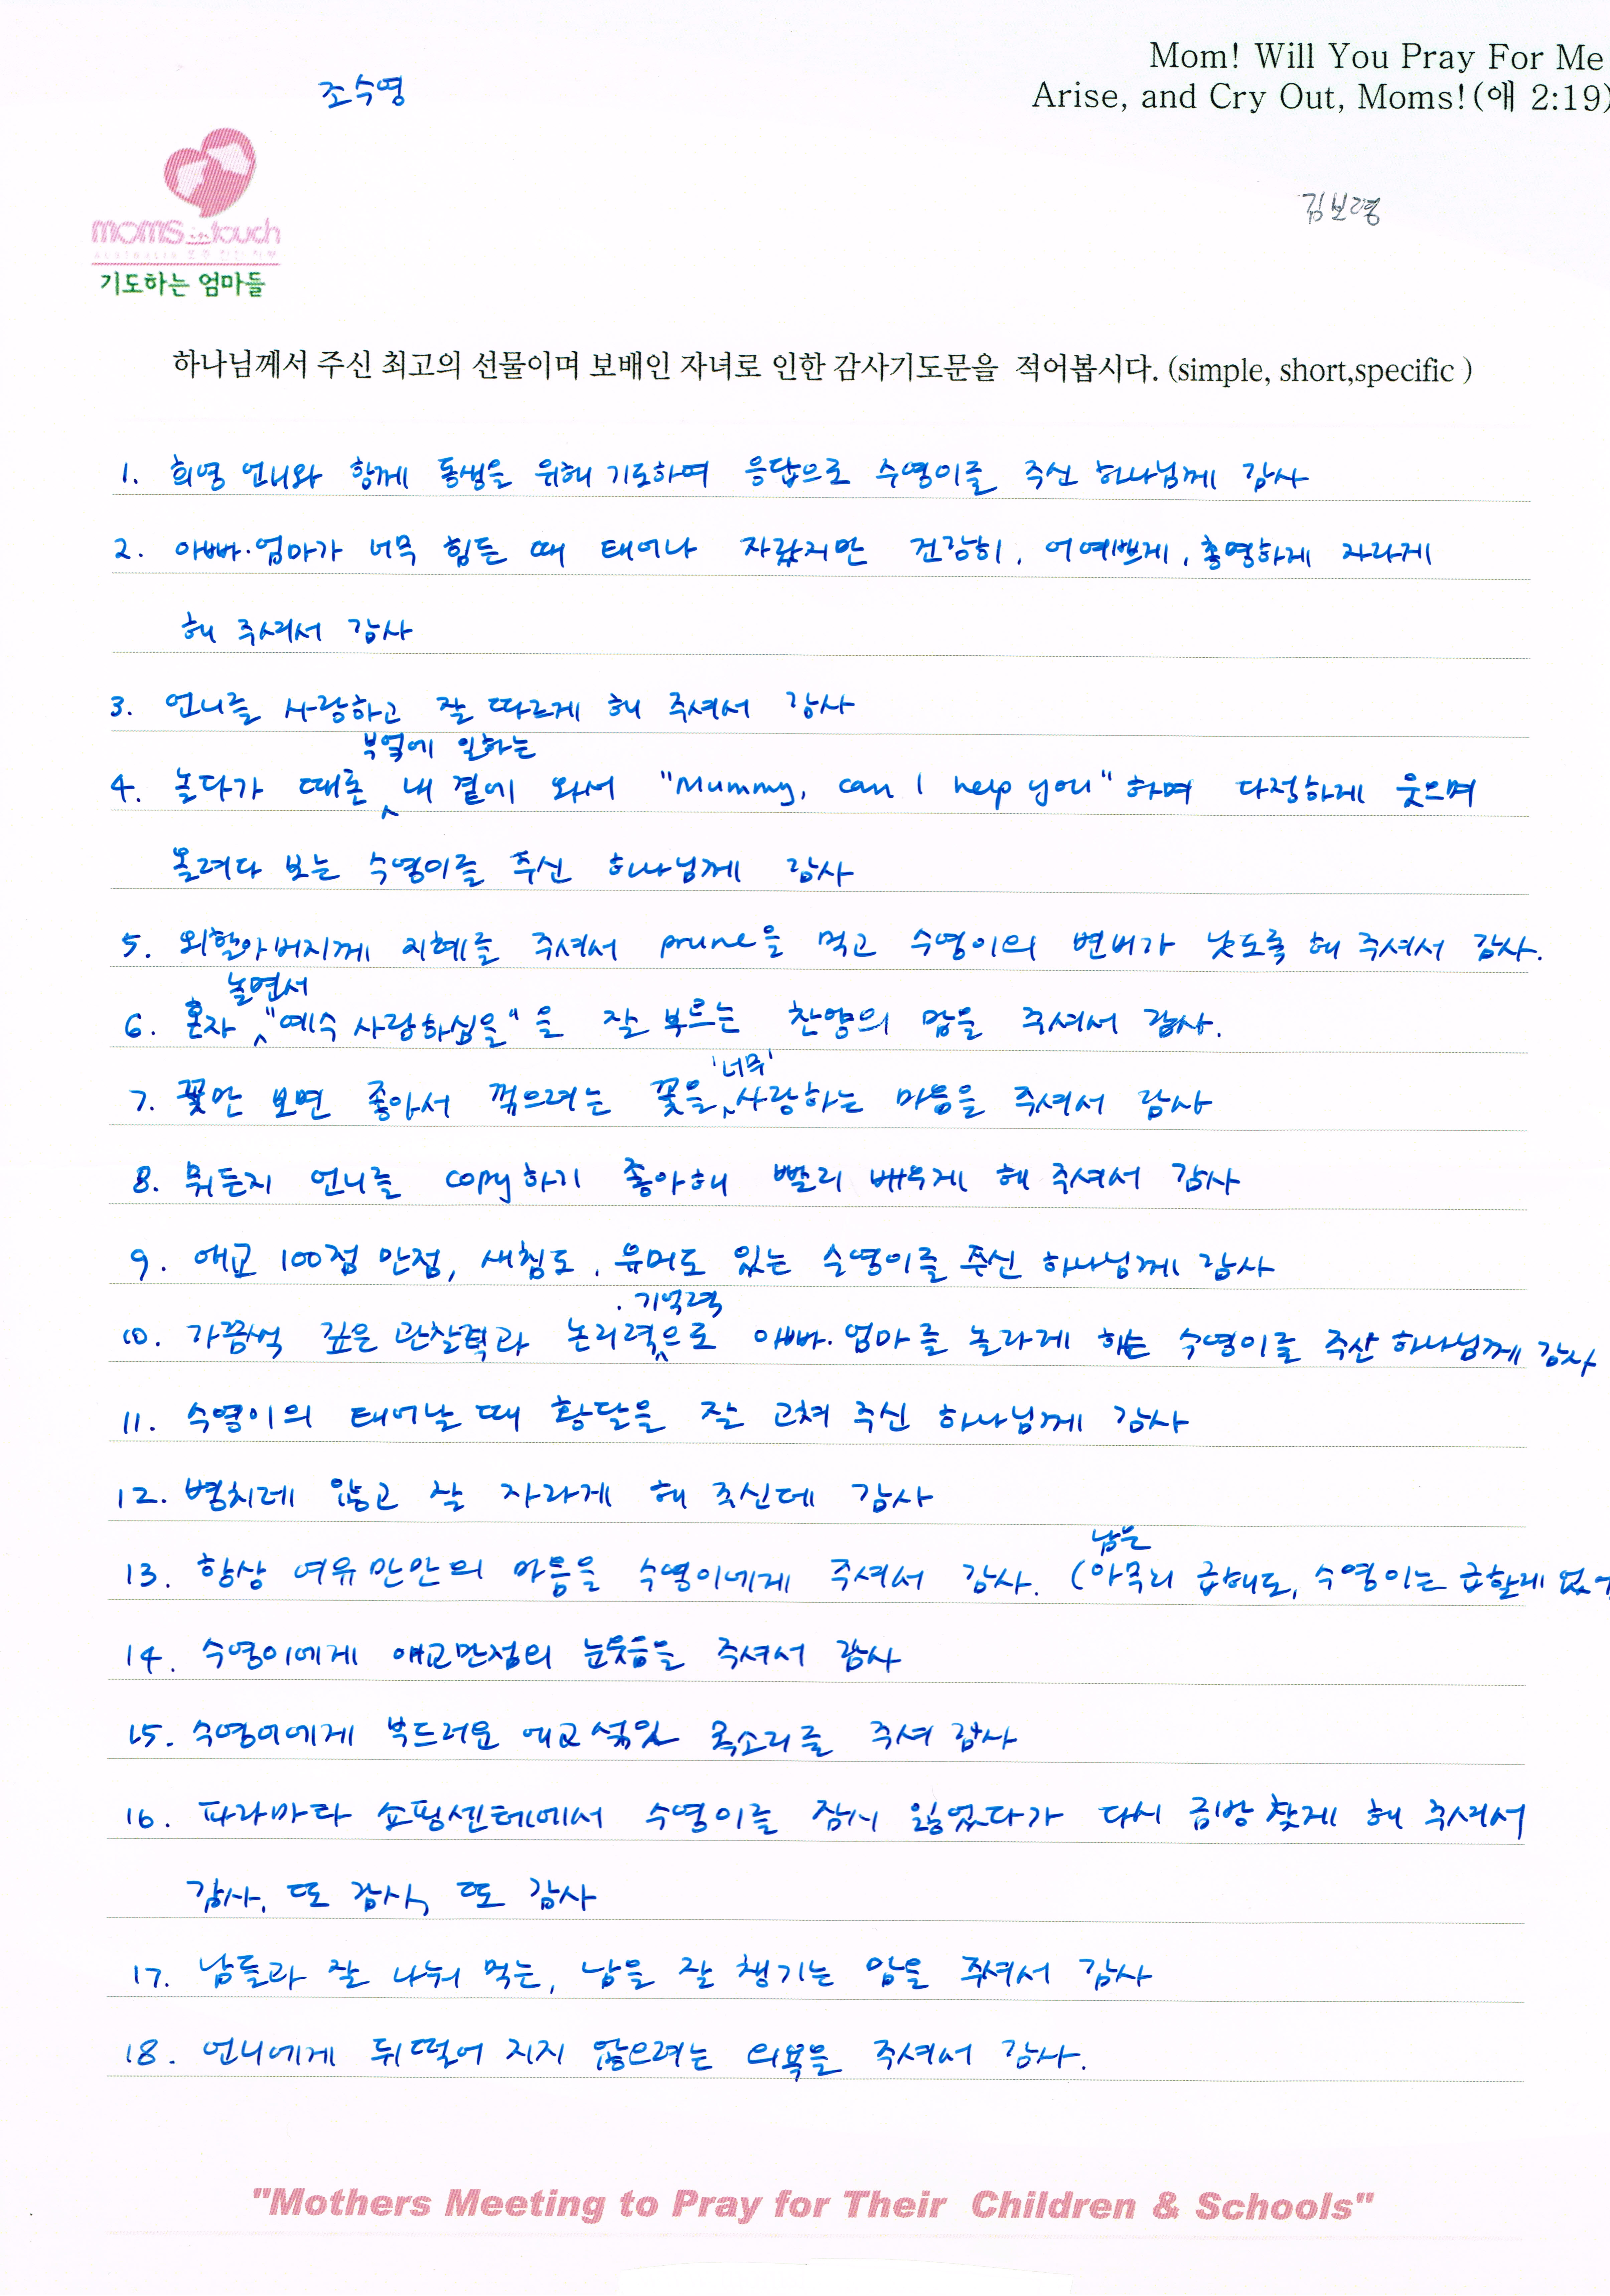 Mom! Will You Pray For Me
조수영
Arise, and Cry Out, Moms!(애 2:19)
김보령
moms in touch
AUSTRALIA 호주
기도하는 엄마들
하나님께서 주신 최고의 선물이며 보배인 자녀로 인한 감사기도문을 적어봅시다. (simple, short,specific )
1. 희영 언니와 함께 동생을 위해 기도하여 응답으로 수영이를 주신 하나님께 감사
2. 아빠·엄마가 너무 힘든 때 태어나 자랐지만 건강히, 어예쁘게, 총명하게 자라게
해 주셔서 감사
3. 언니를 사랑하고 잘 따르게 해 주셔서 감사
부엌에 일하는
4. 놀다가 때론 내 곁에 와서 "Mummy, can I help you" 하며 다정하게 웃으며
올려다 보는 수영이를 주신 하나님께 감사
5. 외할아버지께 지혜를 주셔서 prune을 먹고 수영이의 변비가 낫도록 해 주셔서 감사.
놀면서
6. 혼자 "예수 사랑하심을"을 잘 부르는 찬양의 맘을 주셔서 감사.
'너무'
7. 꽃만 보면 좋아서 꺾으려는 꽃을 사랑하는 마음을 주셔서 감사
8. 뭐든지 언니를 copy하기 좋아해 빨리 배우게 해 주셔서 감사
9. 애교 100점 만점, 새침도, 유머도 있는 수영이를 주신 하나님께 감사
. 기억력
10. 가끔씩 깊은 관찰력과 논리력으로 아빠·엄마를 놀라게 하는 수영이를 주신 하나님께 감사
11. 수영이의 태어날 때 황달을 잘 고쳐 주신 하나님께 감사
12. 병치레 않고 잘 자라게 해 주신데 감사
남은
13. 항상 여유만만의 마음을 수영이에게 주셔서 감사. (아무리 급해도, 수영이는 급할게 없어
14. 수영이에게 애교만점의 눈웃음을 주셔서 감사
15. 수영이에게 부드러운 애교섞인 목소리를 주셔 감사
16. 파라마타 쇼핑센터에서 수영이를 잠시 잃었다가 다시 금방 찾게 해 주셔서
감사, 또 감사, 또 감사
17. 남들과 잘 나눠 먹는, 남을 잘 챙기는 맘을 주셔서 감사
18. 언니에게 뒤떨어 지지 않으려는 의욕을 주셔서 감사.
"Mothers Meeting to Pray for Their Children & Schools"